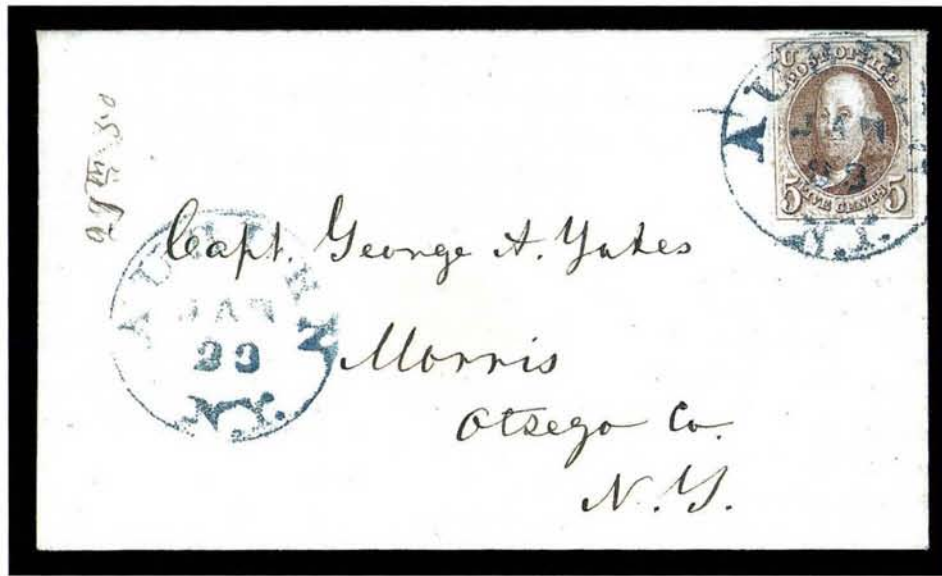 U
POST OFFICE
5 FIVE CENTS 5
JAN
23
N.Y.
Capt. George A. Yates
Morris
Otsego Co.
N.Y.
AUBURN
JAN
23
N.Y.